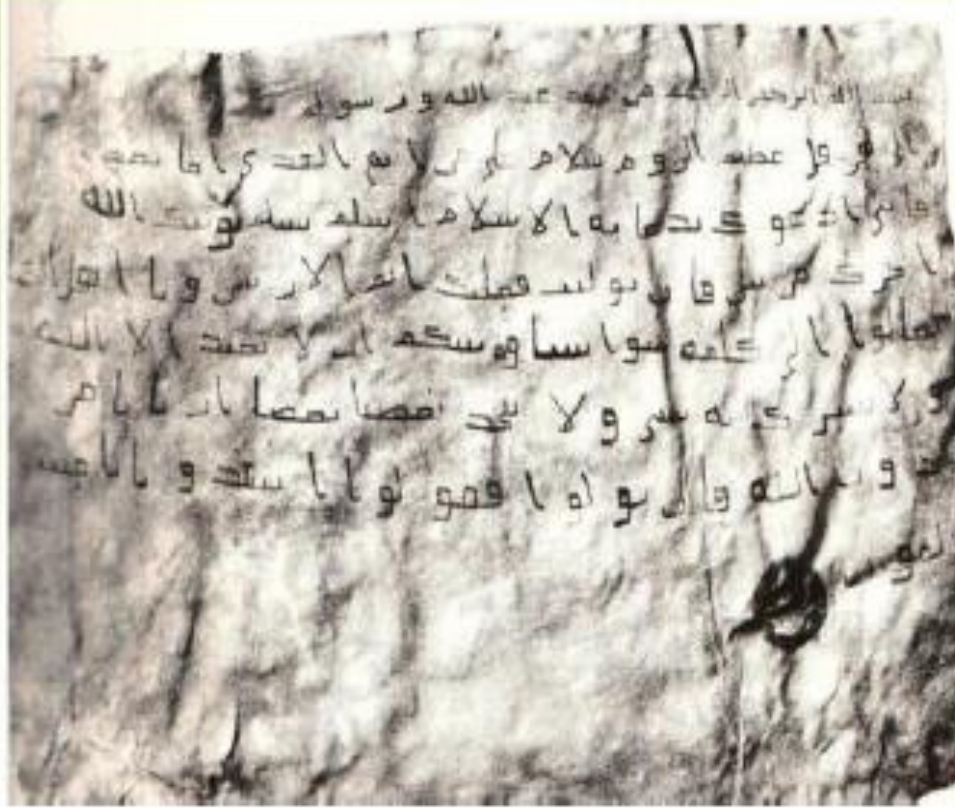 بسم الله الرحمن الرحيم من محمد عبد الله ورسوله
إلى هرقل عظيم الروم سلام على من اتبع الهدى أما بعد
فإني أدعوك بدعاية الإسلام أسلم تسلم يؤتك الله
أجرك مرتين فإن توليت فعليك إثم الأريسيين ويا أهل الكتاب
تعالوا إلى كلمة سواء بيننا وبينكم ألا نعبد إلا الله
ولا نشرك به شيئا ولا يتخذ بعضنا بعضا أربابا من
دون الله فإن تولوا فقولوا اشهدوا بأنا مسلمون